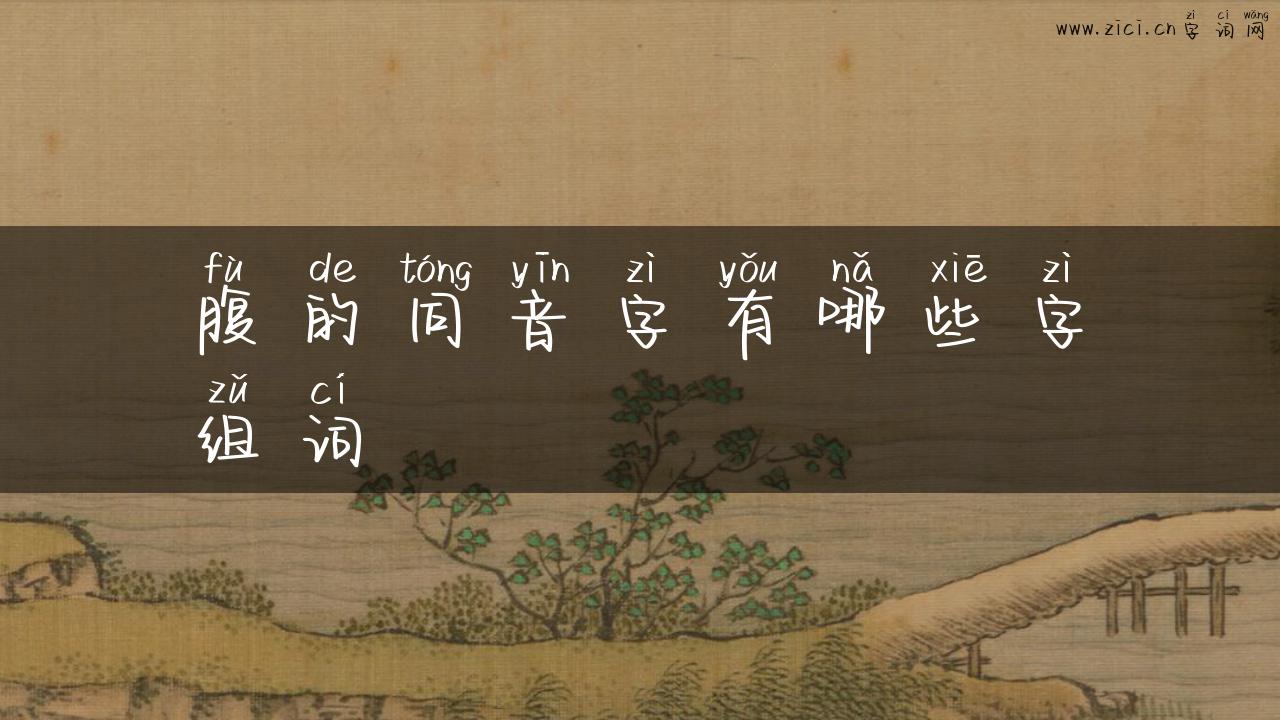 zì cí wǎng
www.zici.cn 字 词 网
fù de tóng yīn zì yǒu nǎ xiē zì
腹 的 同 音 字 有 哪 些 字
zǔ cí
组 词